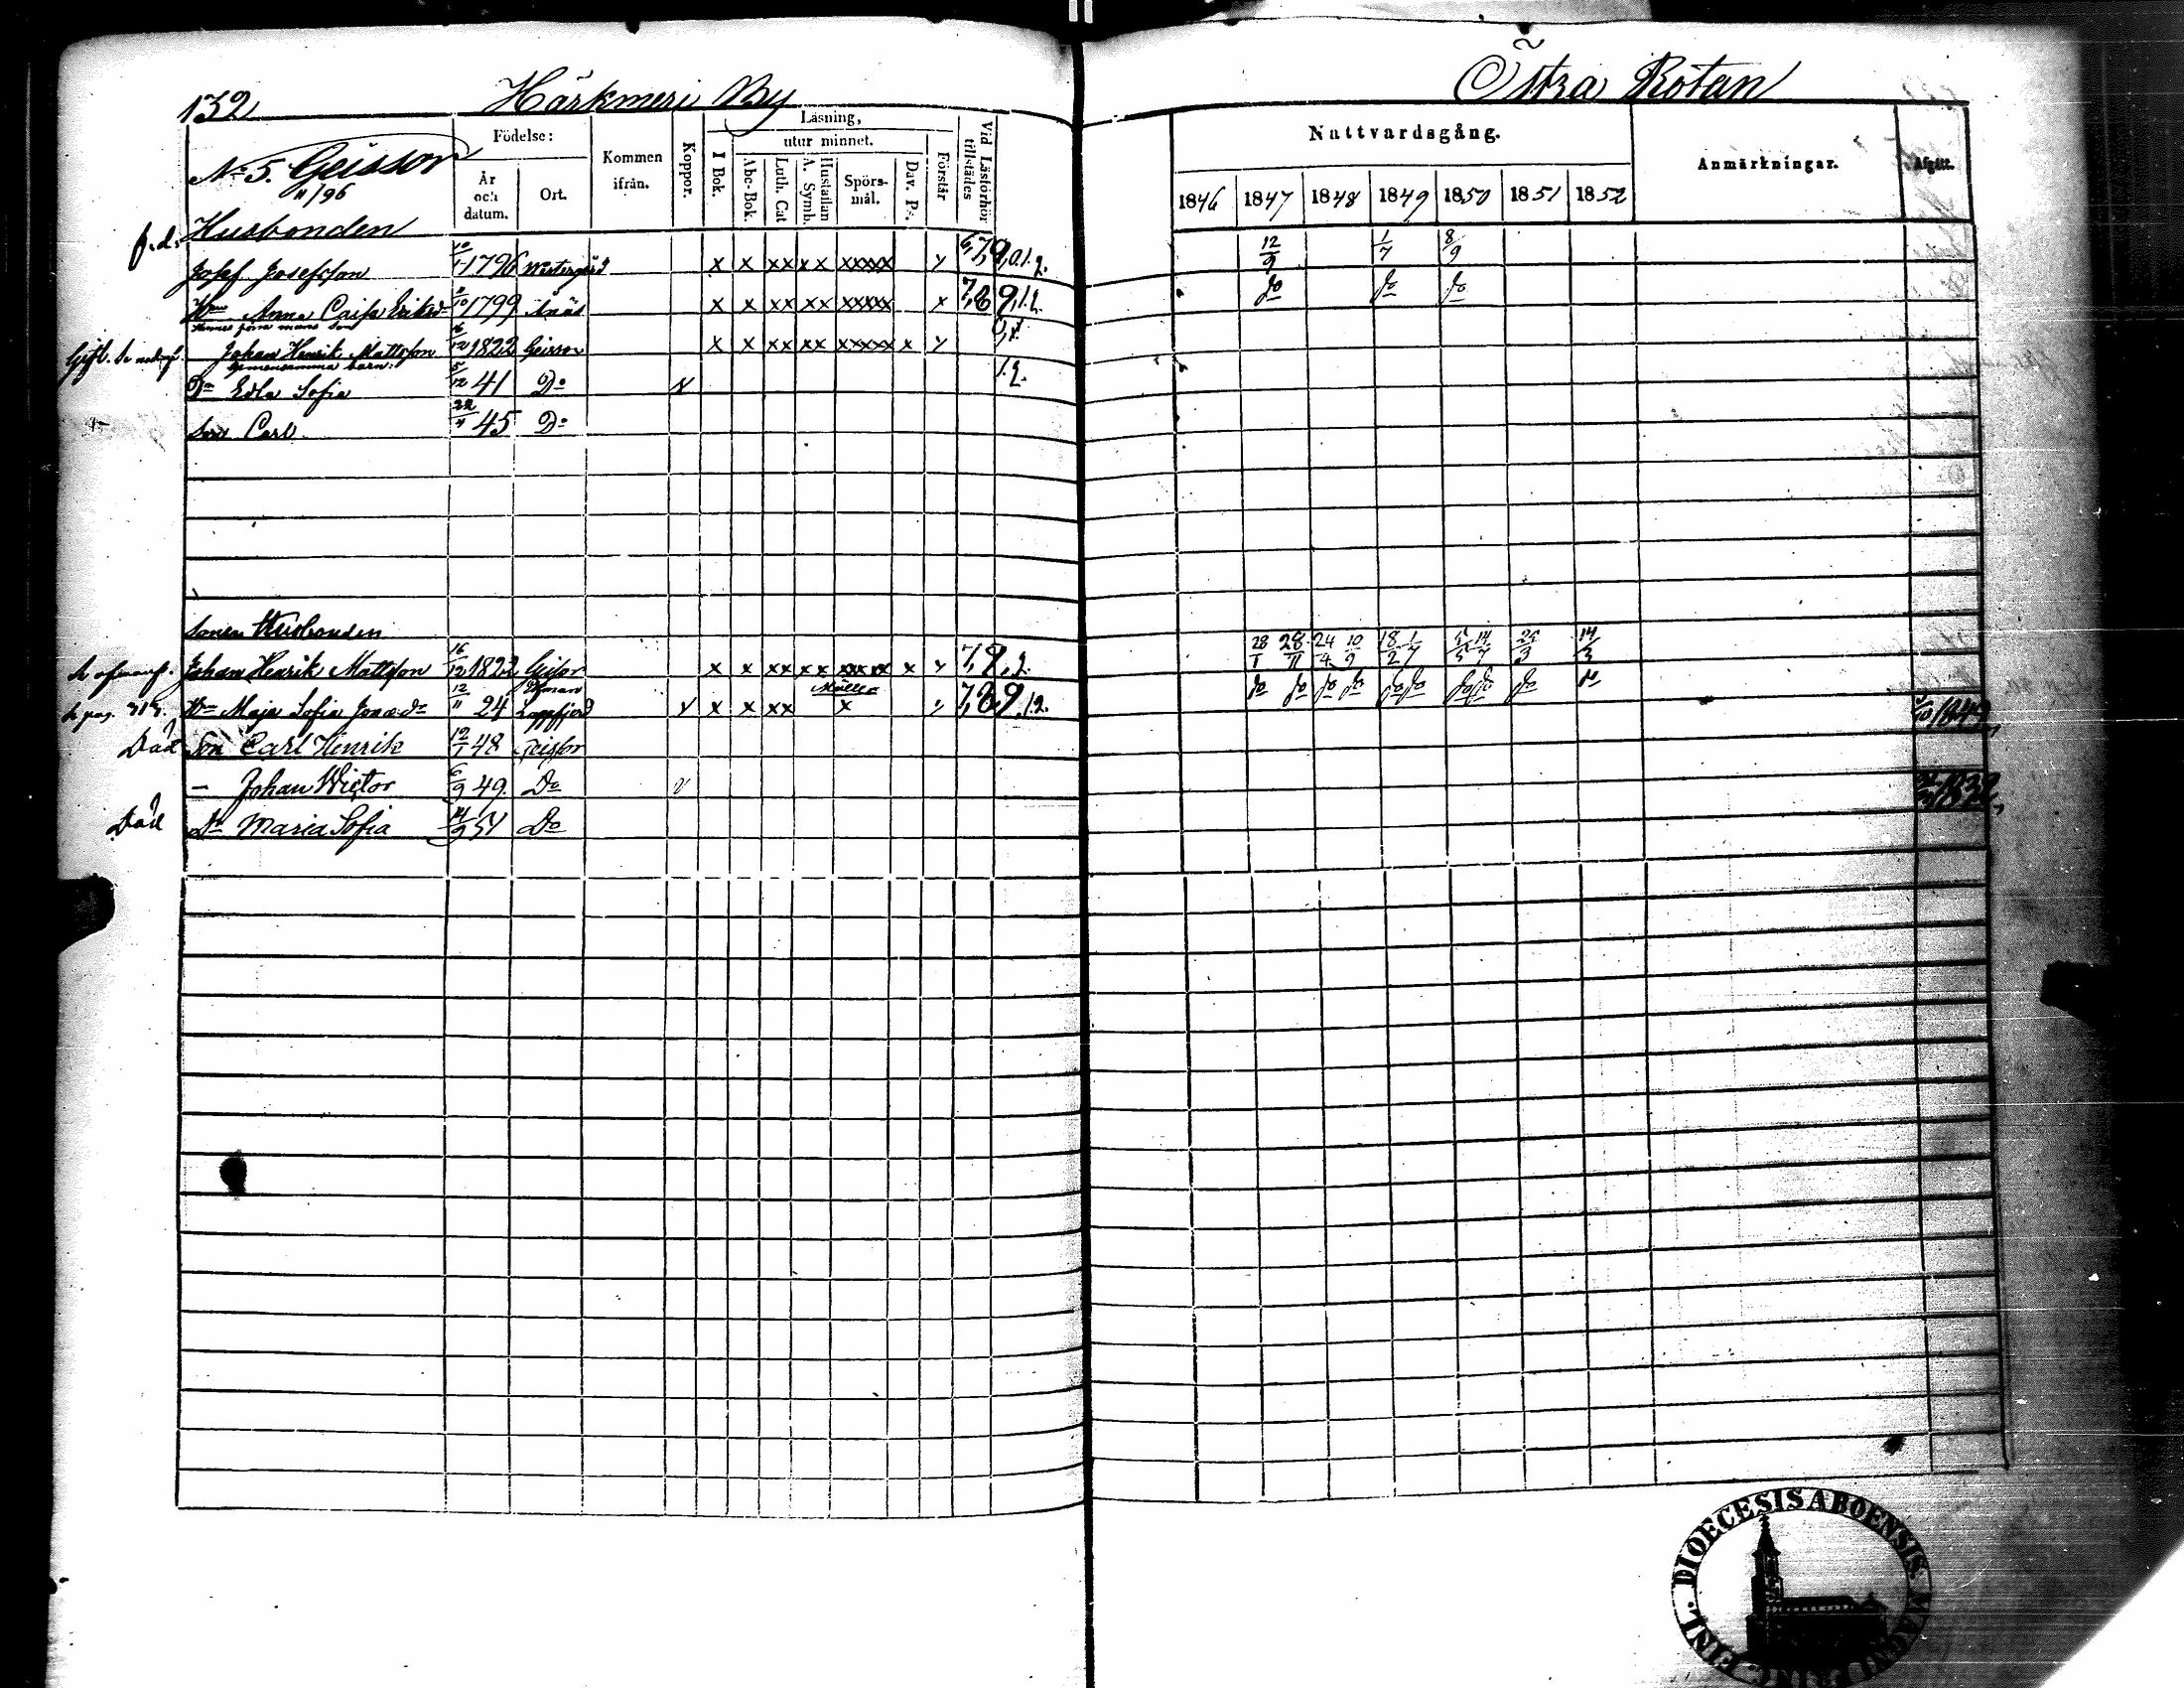 132 Härkmeri By
Östra Rotan
No 5. Geissor
11/96
Födelse:
År och datum.
Ort.
Kommen ifrån.
Koppor.
Läsning,
I Bok.
utur minnet.
Abc-Bok.
Luth. Cat
Hustaflan A. Symb.
Spörsmål.
Dav. Ps.
Förstår
Vid Läsförhör tillstädes
Nattvardsgång.
1846 1847 1848 1849 1850 1851 1852
Anmärkningar.
Afgått.
f.d. Husbonden
Josef Josefsson 10/1 1796 Westergård x x xx xx xxxxx 12/9 1/7 8/9
Hu Anna Caisa Eriksd 1799 Ånäs x x xx xx xxxxx x 7,8 9,1.2. do do do
Hennes förra mans son
Johan Henrik Mattsson 16/12 1822 Geissor x x xx xx xxxxx x
Gemensamma barn:
Dr Edla Sofia 5/12 41 Do 1.2.
Son Carl 22/11 45 Do
Sonen Husbonden
Johan Henrik Mattsson 16/12 1822 Geissor x x xx xx xxxxx x 28/1 28/11 24/4 10/9 18/2 1/7 14/7 14/3
Hu Maja Sofia Jonæ dr 12/11 24 Lappfjerd x x xx x 7,8,9,12. do do do do do do do do do
Död Son Carl Henrik 12/1 48 Geissor
— Johan Wictor 6/9 49. Do
Död Dr Maria Sofia 51 Do
FINL. DIOECESIS ABOENSIS. MAGNI PRINC.